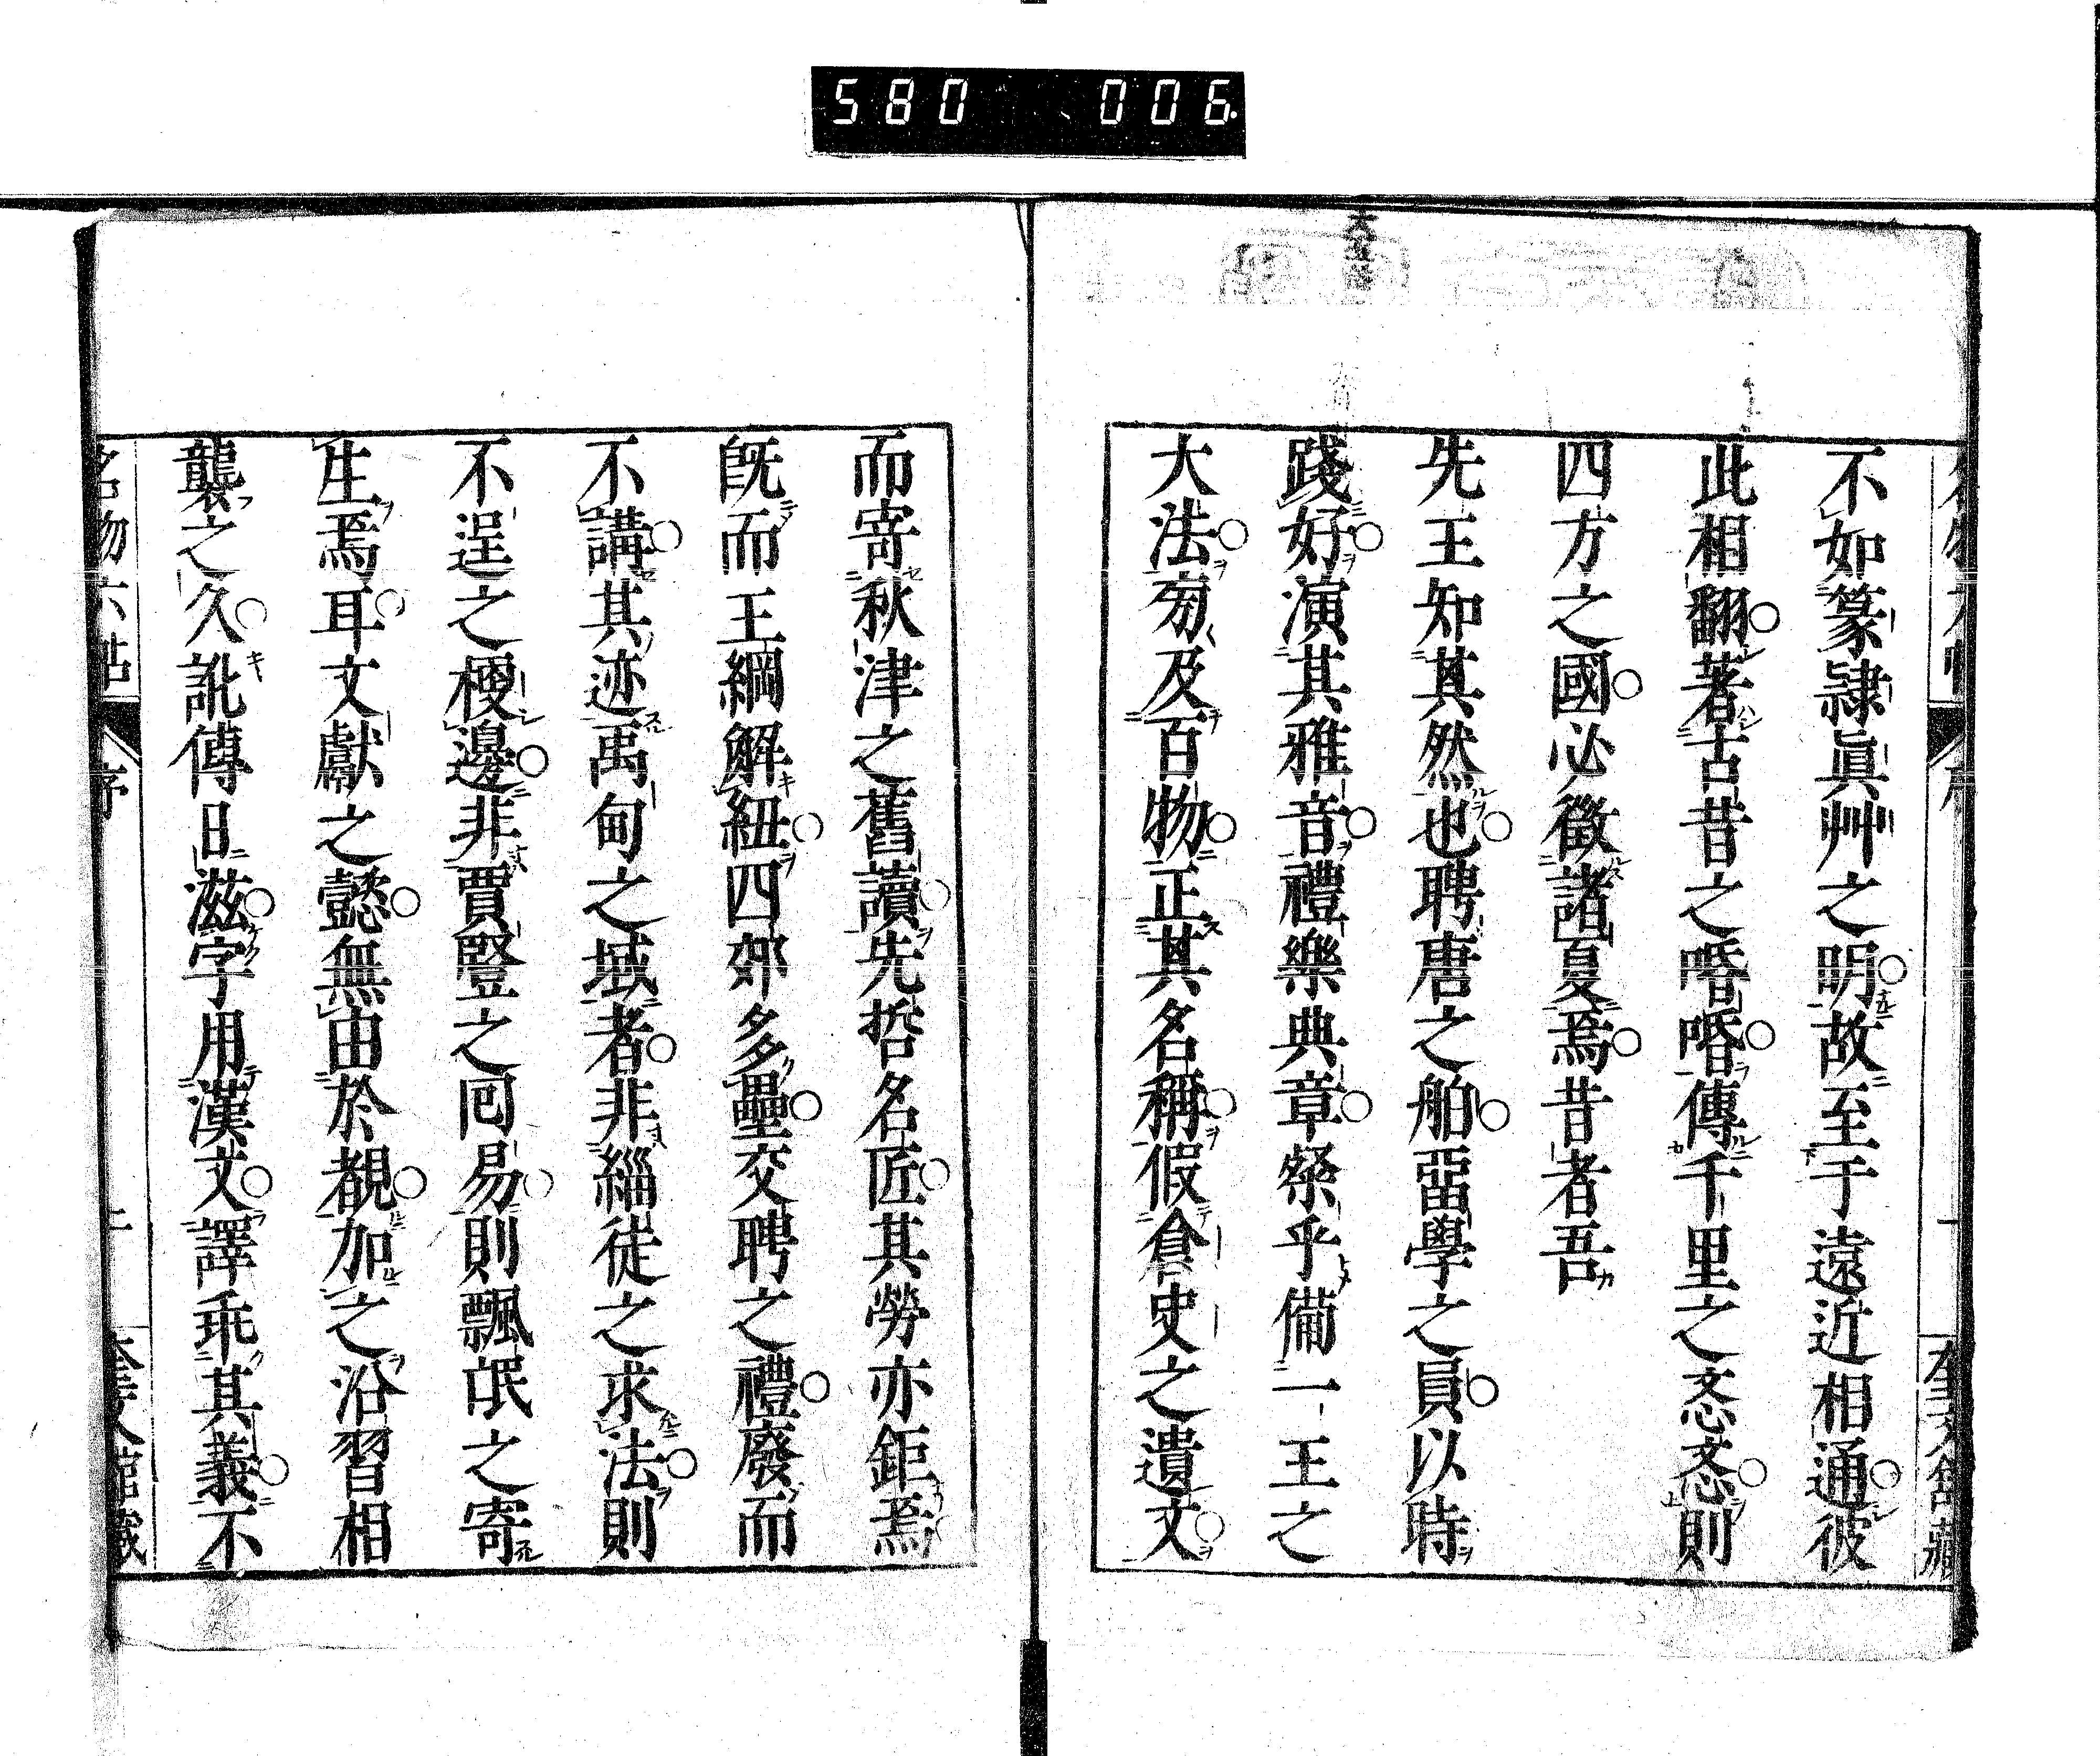 580 006
不如篆隷眞艸之明故至于遠近相通彼
此相翻著古昔之㖧㖧傳千里之忞忞則
四方之國必徵諸夏焉昔者吾
先王知其然也聘唐之舶畱學之員以時
踐好演其雅音禮樂典章粲乎備一王之
大法旁及百物正其名稱假倉史之遺文
而寄秋津之舊讀先哲名匠其勞亦鉅焉
既而王綱解紐四郊多壘交聘之禮廢而
不講其迹禹甸之域者非緇徒之求法則
不逞之梗邊非賈豎之回易則飄氓之寄
生焉耳文獻之懿無由於覩加之沿習相
襲之久訛傳日滋字用漢文譯乖其義不
名物六帖 序 二 奎文館藏